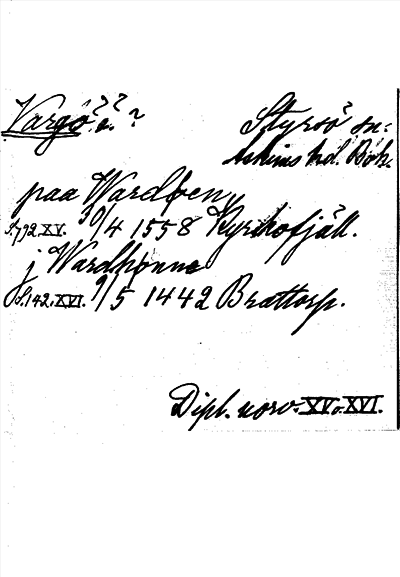 Vargö ö. ?
Styrsö sn.
Askims hd. Boh.
paa Wardøen
S. 792. XV. 30/4 1558 Kyrkofjäll.
j Wardhønne
S. 142. XVI. 9/5 1442 Brattorp.
Dipl. norv. XV o. XVI.